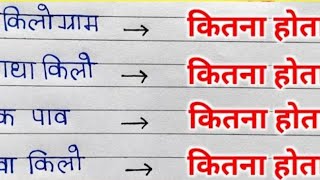 किलो ग्राम → कितना होता
ाधा किलो → कितना होता
क पाव → कितना होता
वा किलो → कितना होता